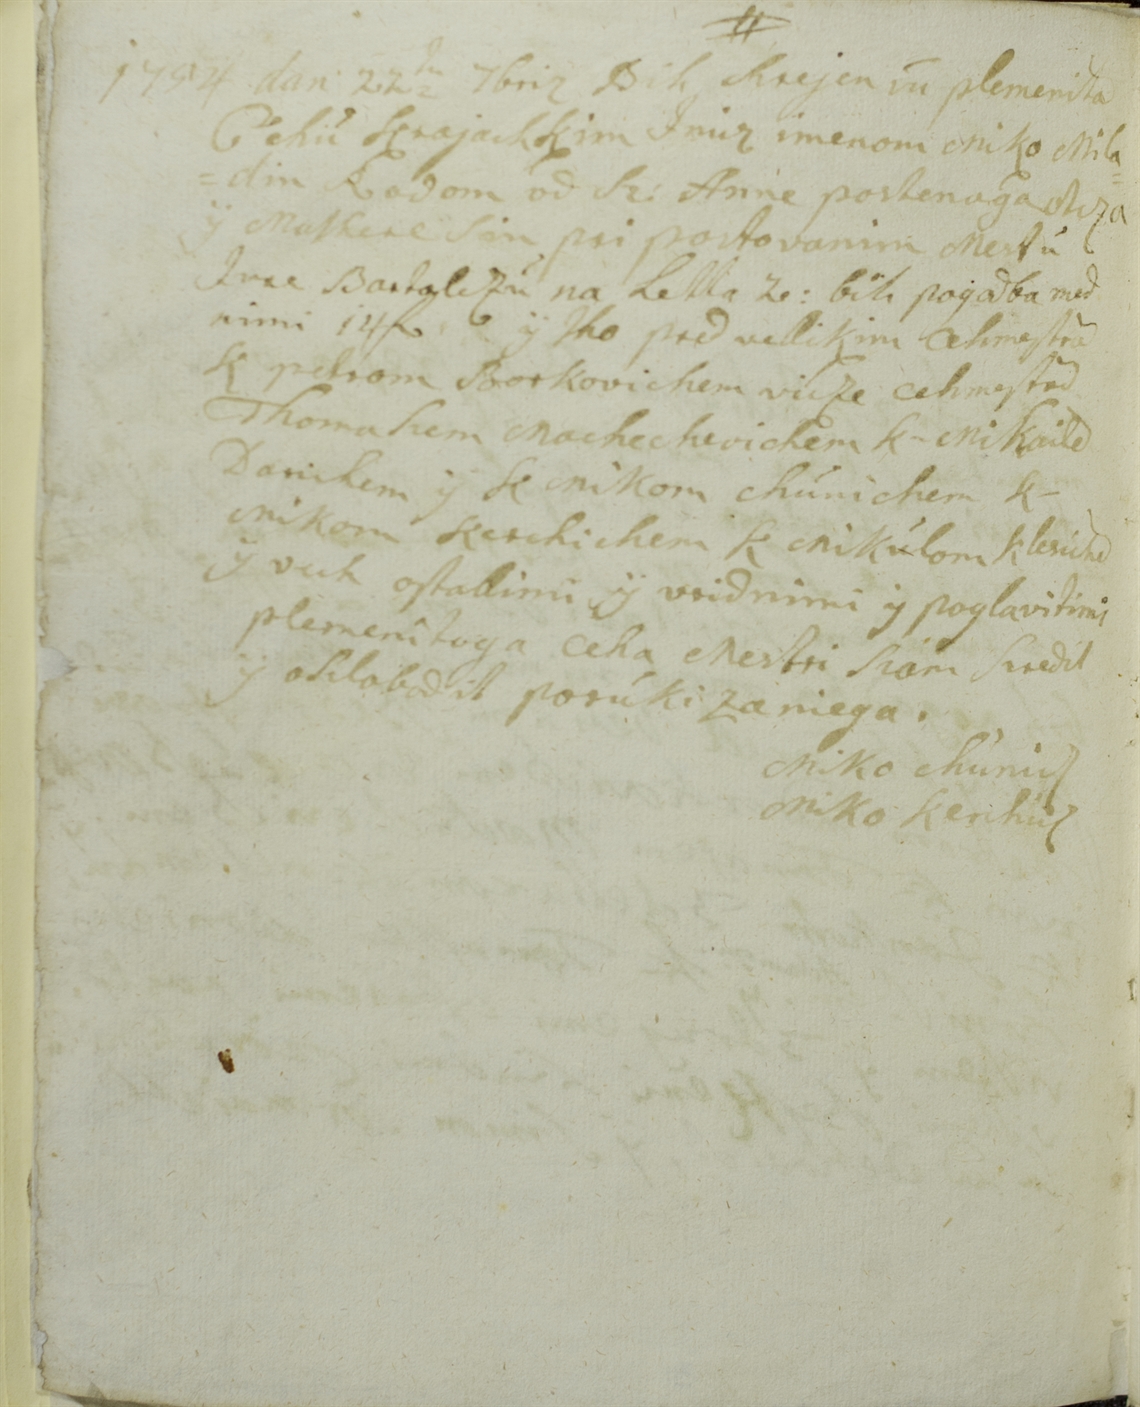 1754 dan: 22 7briz Bih skrejen vu plemenita
Cehu krajachkim Inuz imenom Miko Mila=
=din Rodom od Sz: Anne postenoga Otcza
ÿ Mathere Sin pri postovanim Mestru
Ivze Bartolczu na Letta 2e: bih pogodba med
nimi 14 f ÿ tho pred vellikim Cehmestro
k petrom Borkovichem vicze cehmestrō
Thomasem Machechevichem k Mikaile
Darichem ÿ k Mikom Chunichem k-
Mikom Kerchichem k Mikulom
ÿ vseh ostallimi ÿ vridnimi ÿ poglavitimi
plemenitoga Ceha Mestri szam szredil
ÿ oszlobodil poruki za niega.
Miko Chunich
Miko Kerchich